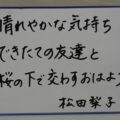 晴れやかな気持ち
できたての友達と
桜の下で交わすおはよう
松田梨子